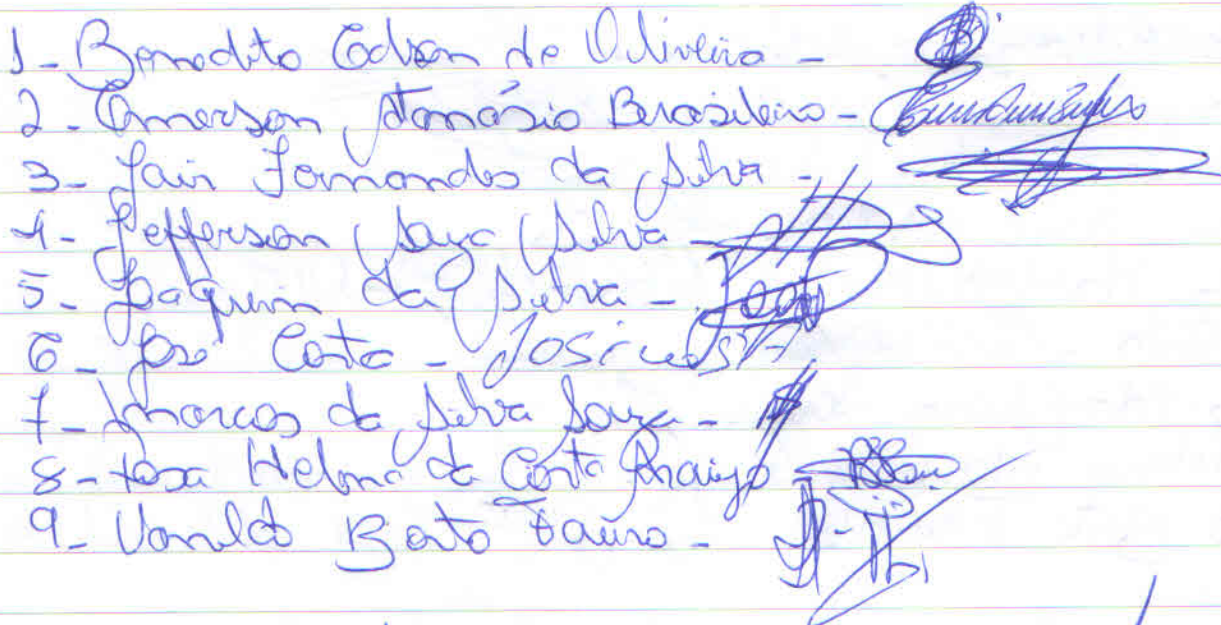 1- Benedito Edson de Oliveira -
2- Emerson Atanásio Brasileiro -
3- Jair Fernandes da Silva -
4- Jefferson Souza Silva -
5- Joaquim da Silva -
6- José Costa - José
7- Marcos da Silva Souza -
8- Rosa Helena da Costa Araujo
9- Vanildo Bento